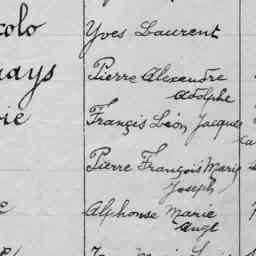 colo Yves Laurent
uays Pierre Alexendre
Adolphe
rie Françis Léon Jacques
Pierre François Marie
Joseph
Alphonse Marie
Ange